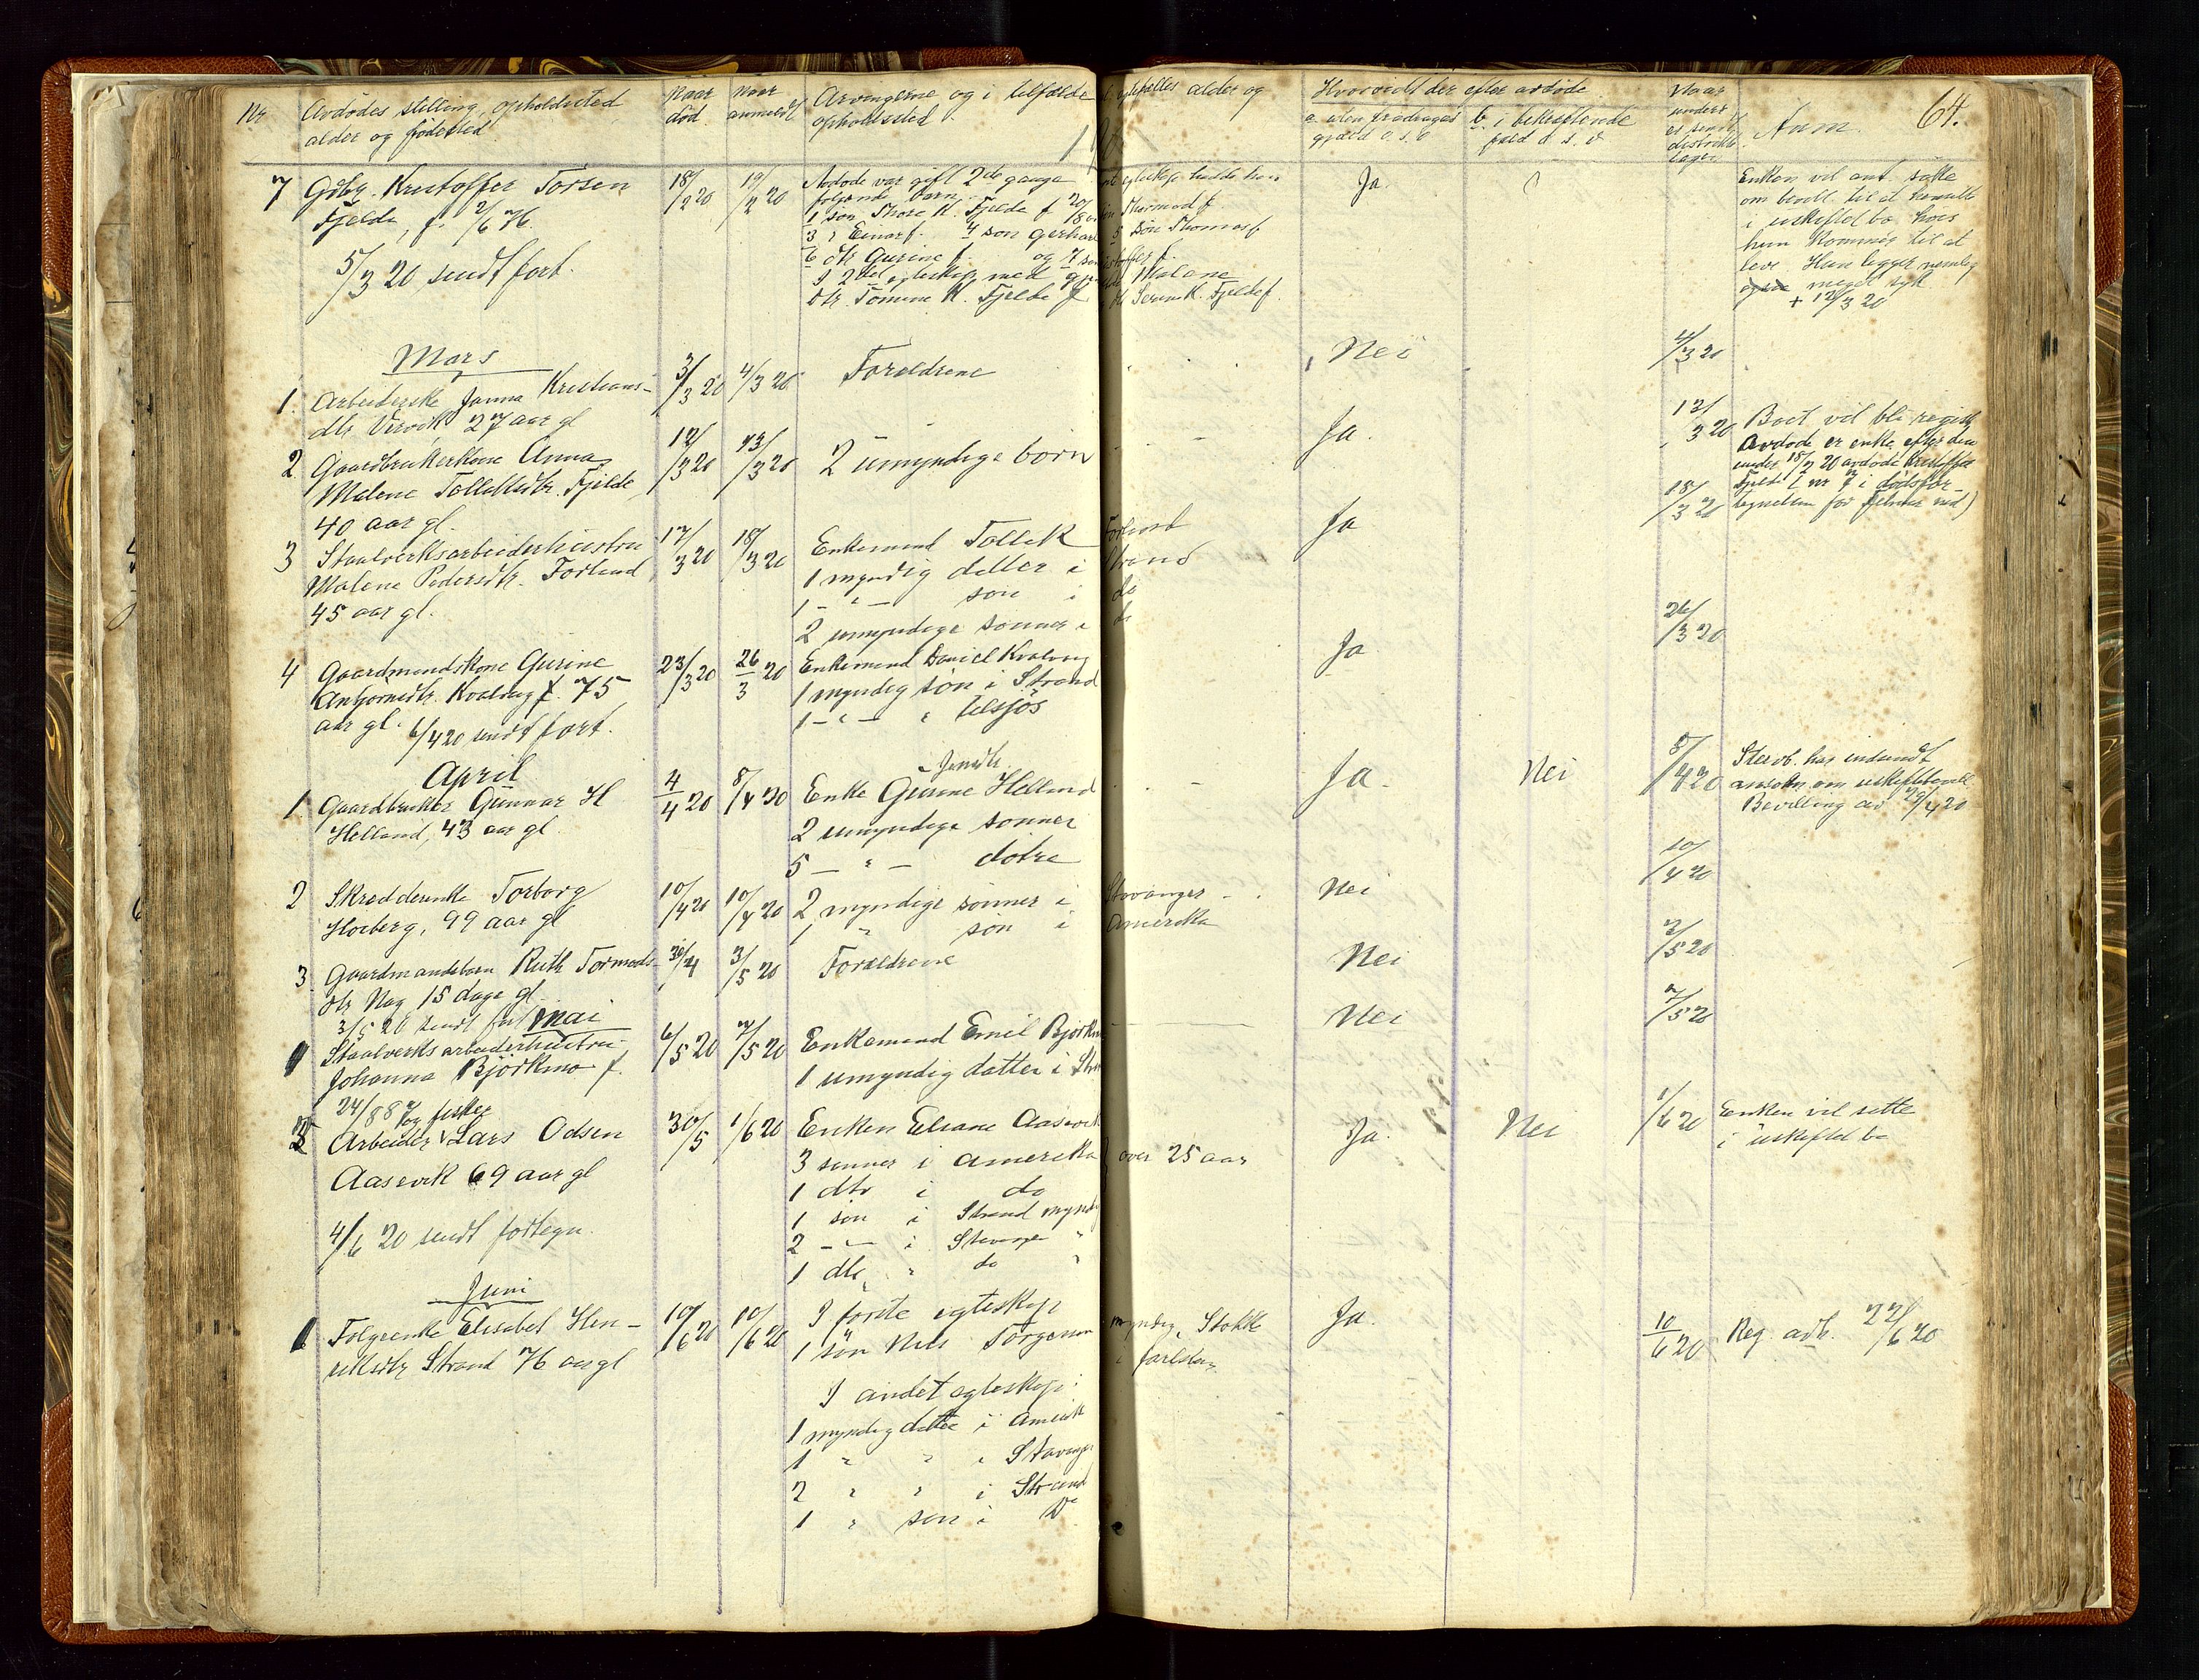 Nr. Avdødes stilling, opholdssted alder og fødested Naar død Naar anmeldt Arvingerne og i tilfælde egtefælles alder og opholdssted Hvorvidt der efter avdøde
a. uten fradrag av gjæld o.s.v. b. i bekræftende fald o.s.v. Naar Anm. 64.
7 Gdbr. Kristoffer Torsen 18/2 20 19/2 20 Avdøde var gift 2de gange egteskap hadde han Ja. Enken vil ant. søke
Fjelde, f. 2/6 76. følgende barn om bevill. til at hensitte
1 søn Thore K. Fjelde f. Thormod f. i uskiftet bo, hvis
3 " Einar f. 4 søn Gerhard 5 søn Thomas f. hun kommer til at
5/3 20 sendt fort. 6 dtr Gurine f. og 7 søn leve. Hun ligger nemlig
I 2det egteskap med Malene ogsaa meget syk
dtr. Tomine K. Fjelde f. K. Fjelde f. + 12/3 20
Mars
1. Arbeiderske Janna Kristians- 3/3 20 4/3 20 Forældrene Nei 4/3 20
dtr. Vervik 27 aar gl
2 Gaardbrukerkone Anna 12/3 20 13/3 20 2 umyndige børn Ja. 13/3 20 Boet vil bli registr
Malene Tollaksdtr. Fjelde Avdøde er enke efter den
40 aar gl. under 18/2 20 avdøde Kristoffer
Fjelde (nr 7 i dødsfor-
tegnelsen for februar md)
3 Staalverksarbeiderhustru 17/3 20 18/3 20 Enkemand Tollak Forland Ja 18/3 20
Malene Pedersdtr. Forland 1 myndig datter i Strand
45 aar gl. 1 - " - søn i do
2 umyndige sønner i do
4 Gaardmandskone Gurine 23/3 20 26/3 20 Enkemand Daniel Kvalvag Ja 26/3 20
Anbjørnsdtr. Kvalvag f. 75 1 myndig søn i Strand
aar gl. 6/4 20 sendt fort. 1 - " - " tilsjøs
April
1. Gaardbruker Gunnar H 4/4 20 8/4 20 Enke Gurine Helland Ja. Nei 8/4 20 Stervb. har indsendt
Helland, 43 aar gl 2 umyndige sønner ansøkn. om uskiftebevill.
5 - " - døtre Bevilling av 29/4 20
2 Skredderenke Torborg 10/4 20 10/4 20 2 myndige sønner i Stavanger Nei 10/4 20
Hoiberg, 99 aar gl 1 " søn i Amerika
3 Gaardmandsbarn Ruth Tormods- 30/4 3/5 20 Forældrene Nei 3/5 20
dtr Nag 15 dage gl.
3/5 20 sendt fort Mai
1 Staalverksarbeiderhustru 6/5 20 7/5 20 Enkemand Emil Bjørkmo Nei 7/5 20
Johanna Bjørkmo f. 1 umyndig datter i Strand
24/8 87
2 Arbeider og fisker Lars Odsen 30/5 1/6 20 Enken Eliane Aasevik Ja. Nei 1/6 20 Enken vil sitte
Aasevik 69 aar gl 3 sønner i Amerika over 25 aar i uskiftet bo
1 dtr i do
1 søn i Strand myndig
4/6 20 sendt fortegn. 2 - " - i Stavanger "
1 dtr " do "
Juni
1 Følgeenke Elisabet Hen- 10/6 20 10/6 20 I første egteskap Ja. 10/6 20 Reg. avh. 22/6 20
riksdtr Strand 76 aar gl 1 søn Nils Torgersen myndig, Stokke
i Jarlsberg
I andet egteskap:
1 myndig datter i Amerik
1 " " i Stavanger
2 " " i Strand
1 " søn i Do